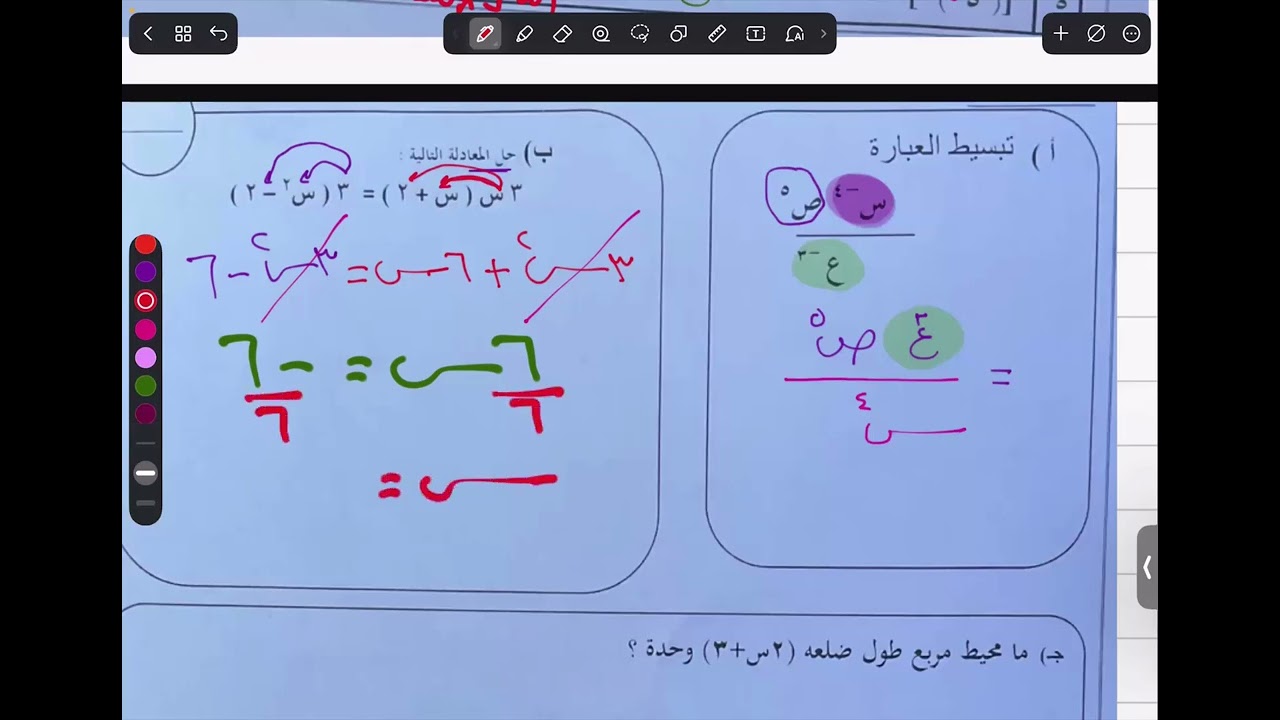 أ ) تبسيط العبارة
س⁻⁴ ص⁵
ع⁻³
= ع³ ص⁵
س⁴
ب) حل المعادلة التالية :
٣ س ( س + ٢ ) = ٣ ( س² – ٢ )
٣س² + ٦س = ٣س² – ٦
٦س = – ٦
٦ ٦
س =
جـ) ما محيط مربع طول ضلعه (٢س+٣) وحدة ؟